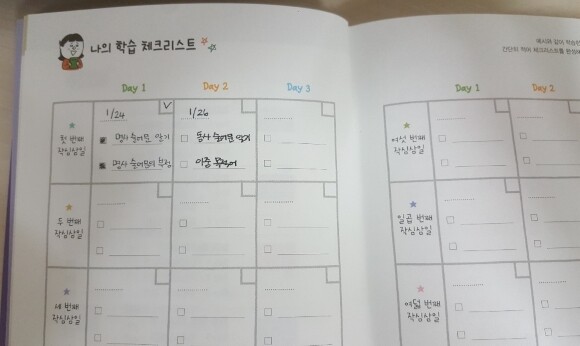 나의 학습 체크리스트
Day 1 Day 2 Day 3
첫 번째
작심삼일
1/24
명사 술어문 암기
명사 술어문의 부정
1/26
동사 술어문 암기
이중 목적어
두 번째
작심삼일
세 번째
작심삼일
예시와 같이
간단히 적어 체크리스트를
Day 1 Day 2
여섯 번째
작심삼일
일곱 번째
작심삼일
여덟 번째
작심삼일